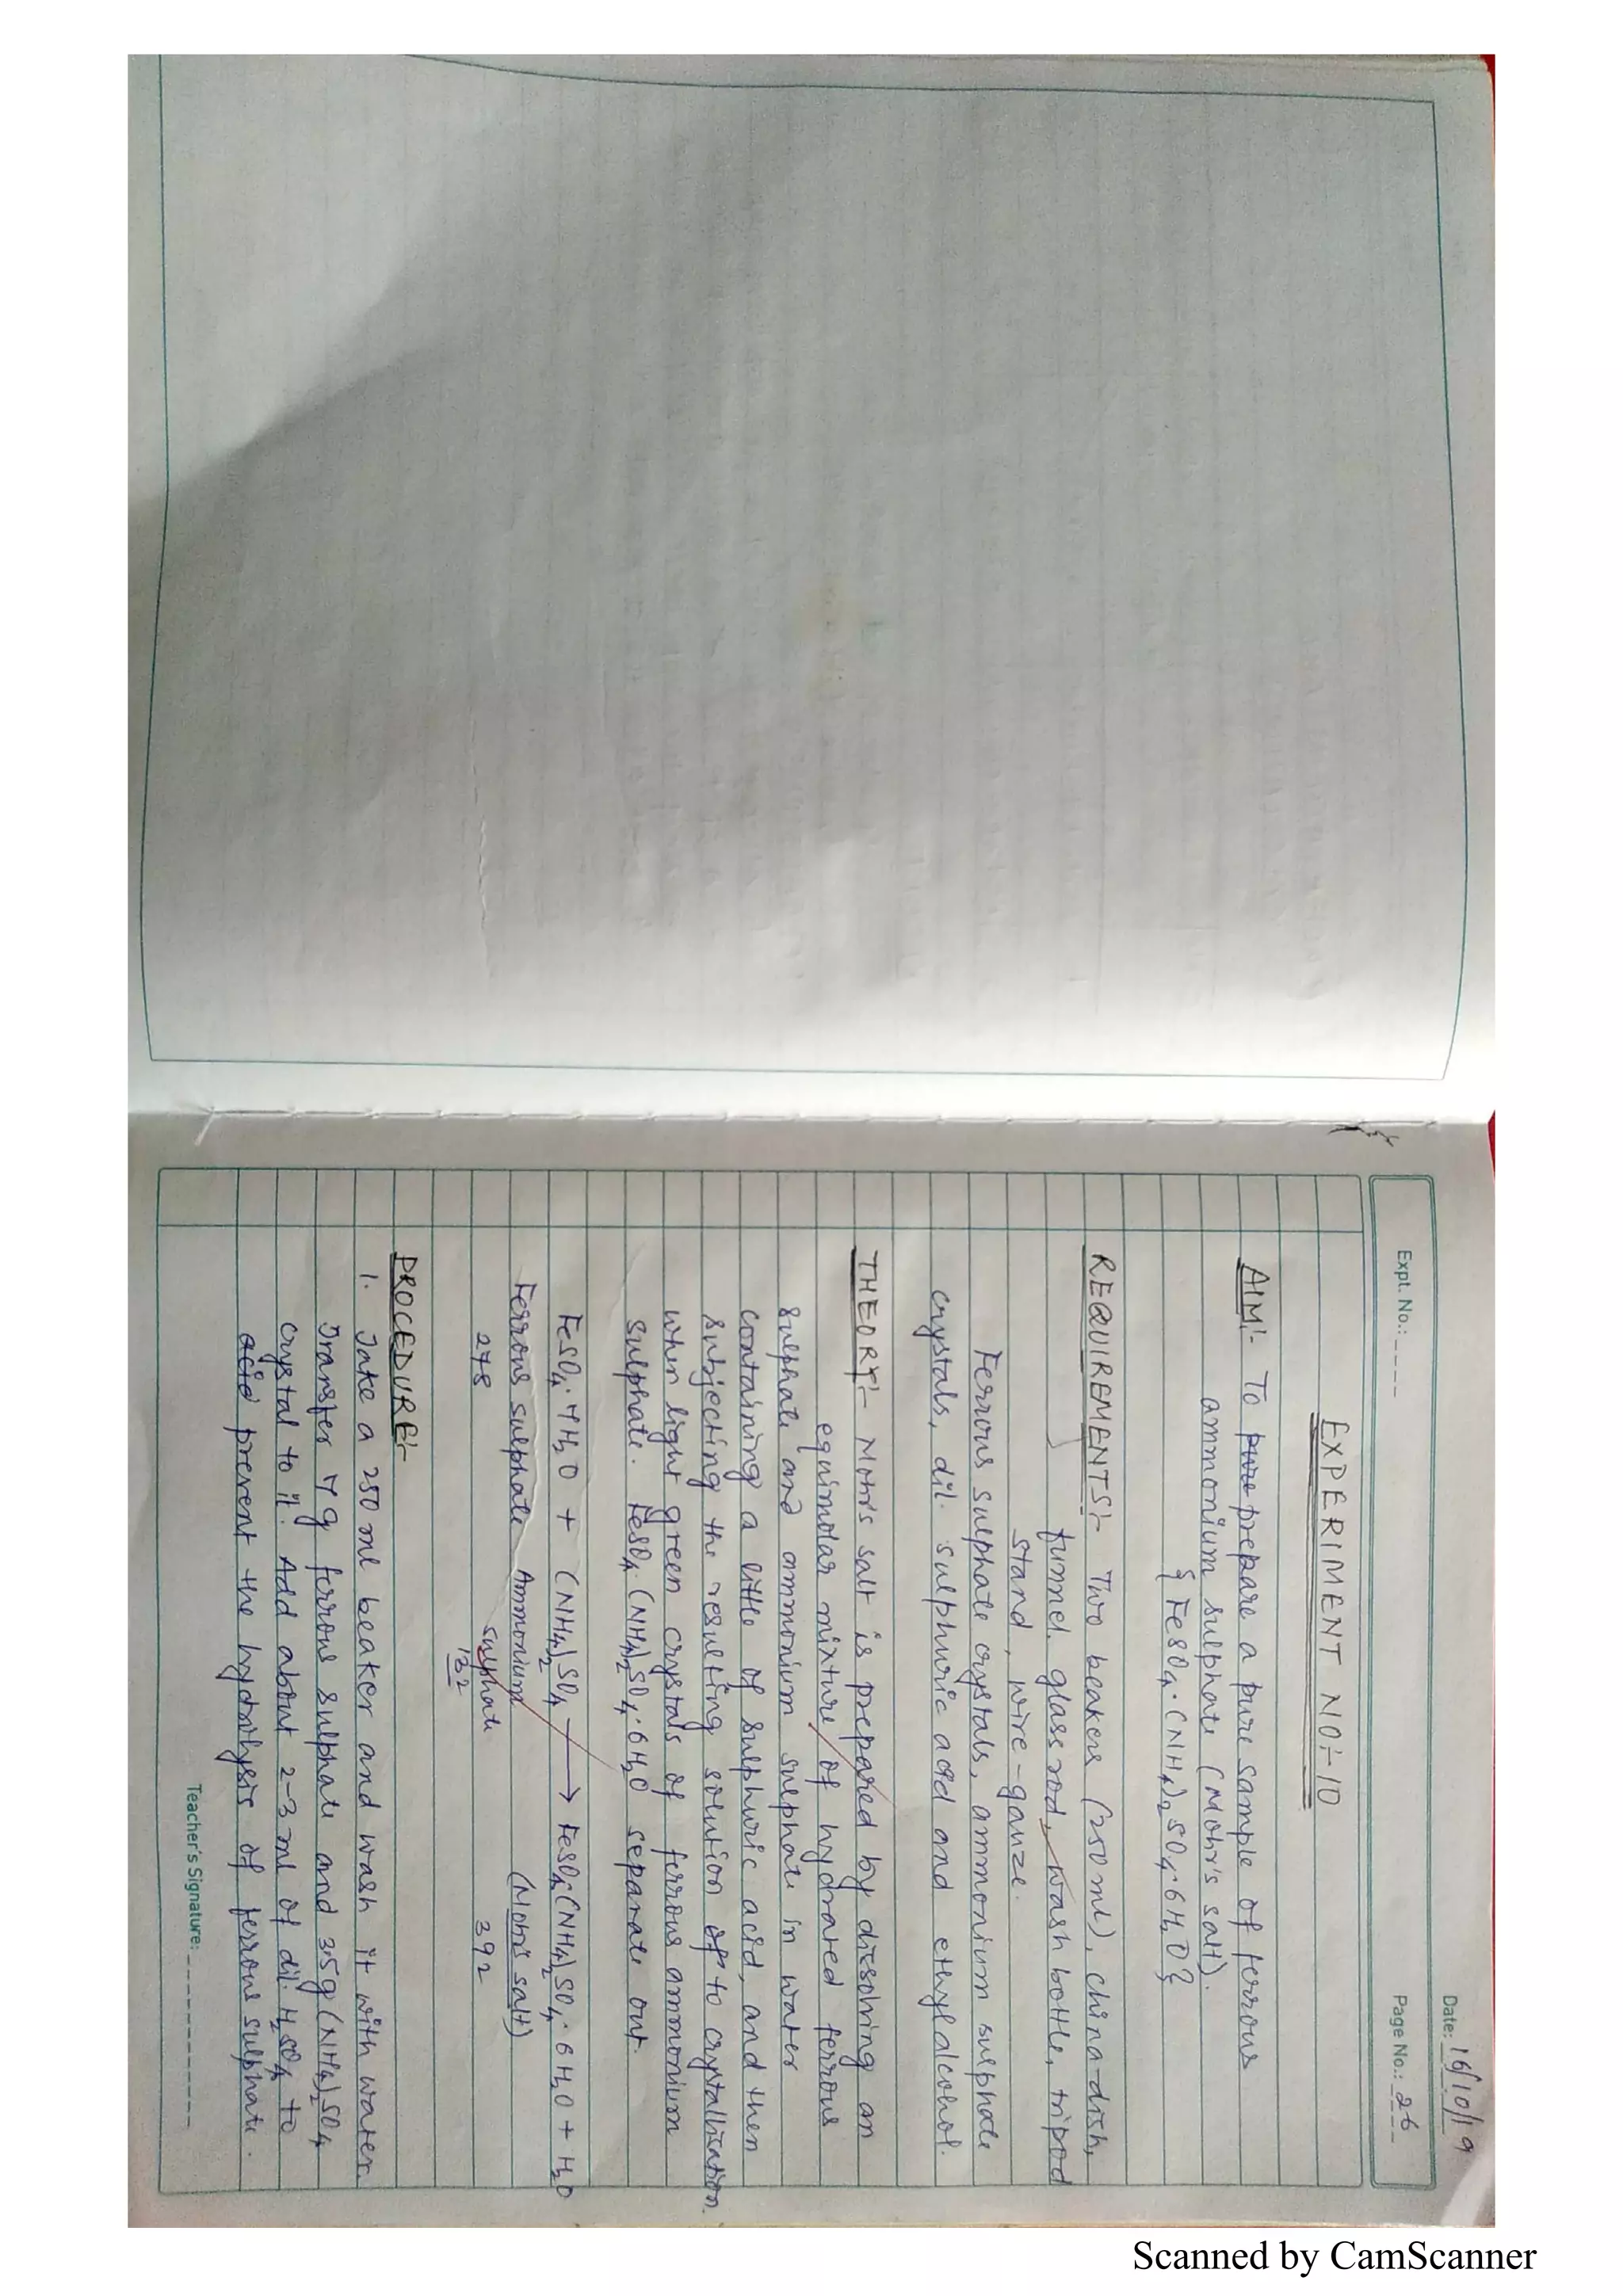 Date: 16/10/19
Expt. No.: Page No.: 26
EXPERIMENT NO:-10
AIM:- To pure prepare a pure sample of ferrous
ammonium sulphate (Mohr's salt).
{FeSO4.(NH4)2SO4.6H2O}
REQUIREMENTS:- Two beakers (250 ml), china-dish,
funnel, glass rod, wash bottle, tripod
stand, wire-gauze.
Ferrous sulphate crystals, ammonium sulphate
crystals, dil. sulphuric acid and ethyl alcohol.
THEORY:- Mohr's salt is prepared by dissolving an
equimolar mixture of hydrated ferrous
sulphate and ammonium sulphate in water
containing a little of sulphuric acid, and then
subjecting the resulting solution of to crystallisation.
when light green crystals of ferrous ammonium
sulphate. FeSO4.(NH4)2SO4.6H2O separate out.
FeSO4.7H2O + (NH4)2SO4 → FeSO4.(NH4)2SO4.6H2O + H2O
Ferrous sulphate Ammonium (Mohr's salt)
278 sulphate 392
132
PROCEDURE:-
1. Take a 250 ml beaker and wash it with water.
Transfer 7 g ferrous sulphate and 3.5g (NH4)2SO4
crystal to it. Add about 2-3 ml of dil. H2SO4 to
acid prevent the hydrolysis of ferrous sulphate.
Teacher's Signature:
Scanned by CamScanner